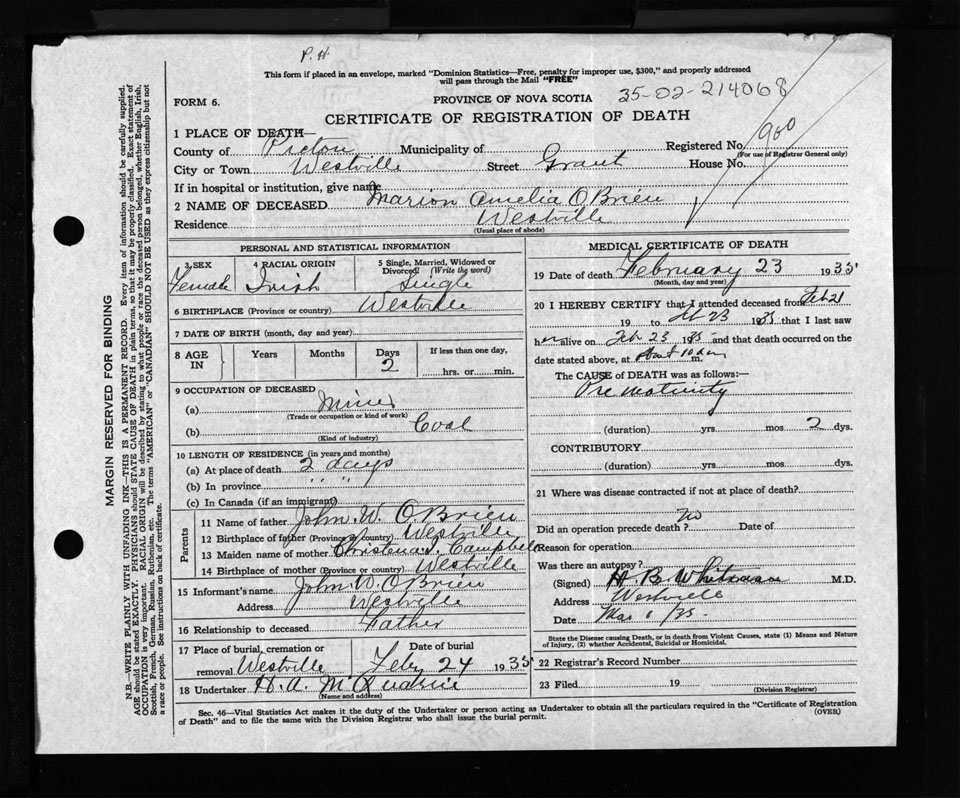 P.H
This form if placed in an envelope, marked "Dominion Statistics—Free, penalty for improper use, $300," and properly addressed
will pass through the Mail "FREE"
FORM 6.
PROVINCE OF NOVA SCOTIA
35-02-214068
CERTIFICATE OF REGISTRATION OF DEATH
1 PLACE OF DEATH—
County of Pictou Municipality of Registered No. 960
(For use of Registrar General only)
City or Town Westville Street Grant House No.
If in hospital or institution, give name
2 NAME OF DECEASED. Marion Amelia O'Brien
Residence Westville
(Usual place of abode)
PERSONAL AND STATISTICAL INFORMATION
3 SEX Female
4 RACIAL ORIGIN Irish
5 Single, Married, Widowed or Divorced? (Write the word) Single
6 BIRTHPLACE (Province or country) Westville
7 DATE OF BIRTH (month, day and year)
8 AGE IN Years Months Days 2 If less than one day, hrs. or min.
9 OCCUPATION OF DECEASED
(a) Miner
(Trade or occupation or kind of work)
(b) Coal
(Kind of industry)
10 LENGTH OF RESIDENCE (in years and months)
(a) At place of death 2 days
(b) In province " " "
(c) In Canada (if an immigrant)
Parents
11 Name of father John W. O'Brien
12 Birthplace of father (Province or country) Westville
13 Maiden name of mother Christena J. Campbell
14 Birthplace of mother (Province or country) Westville
15 Informant's name John W. O'Brien
Address Westville
16 Relationship to deceased Father
17 Place of burial, cremation or removal Westville
Date of burial Feb 24 1935
18 Undertaker H. A. McQuarrie
(Name and address)
MEDICAL CERTIFICATE OF DEATH
19 Date of death February 23 1935
(Month, day and year)
20 I HEREBY CERTIFY that I attended deceased from Feb 21
19 to Feb 23 1935 that I last saw
her alive on Feb 23 1935 and that death occurred on the
date stated above, at about 10 am m.
The CAUSE of DEATH was as follows:—
Prematurity
(duration) yrs mos 2 dys.
CONTRIBUTORY
(duration) yrs. mos. dys.
21 Where was disease contracted if not at place of death?
Did an operation precede death? no Date of
Reason for operation
Was there an autopsy?
(Signed) H B Whitman M.D.
Address Westville
Date Mar 6/35
State the Disease causing Death, or in death from Violent Causes, state (1) Means and Nature
of Injury, (2) whether Accidental, Suicidal or Homicidal.
22 Registrar's Record Number
23 Filed 19
(Division Registrar)
Sec. 46—Vital Statistics Act makes it the duty of the Undertaker or person acting as Undertaker to obtain all the particulars required in the "Certificate of Registration
of Death" and to file the same with the Division Registrar who shall issue the burial permit.
(OVER)
MARGIN RESERVED FOR BINDING
N.B.—WRITE PLAINLY WITH UNFADING INK—THIS IS A PERMANENT RECORD. Every item of information should be carefully supplied.
AGE should be stated EXACTLY. PHYSICIANS should STATE CAUSE OF DEATH in plain terms, so that it may be properly classified. Exact statement of
OCCUPATION is very important. RACIAL ORIGIN will be described by stating to what people or race the deceased person belonged, whether English, Irish,
Scottish, French, German, Russian, Ruthenian, etc. The terms "AMERICAN" or "CANADIAN" SHOULD NOT BE USED as they express citizenship but not
a race or people. See instructions on back of certificate.